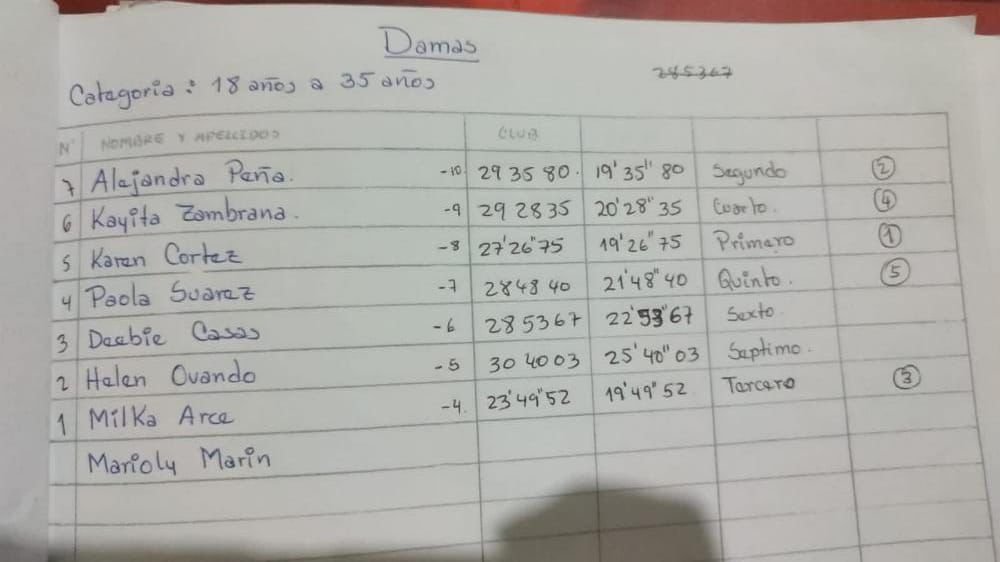 Damas
Categoria: 18 años a 35 años
285367
N° NOMBRE Y APELLIDOS CLUB
7 Alejandra Peña. -10 29 35 80. 19' 35" 80 Segundo 2
6 Kayita Zambrana. -9 29 28 35 20' 28" 35 Cuarto. 4
5 Karen Cortez -8 27' 26" 75 19' 26" 75 Primero 1
4 Paola Suarez -7 28 48 40 21' 48" 40 Quinto. 5
3 Deebie Casas -6 28 53 67 22' 53" 67 Sexto.
2 Helen Ovando -5 30 40 03 25' 40" 03 Septimo.
1 Milka Arce -4. 23' 49" 52 19' 49" 52 Tercero 3
Marioly Marin